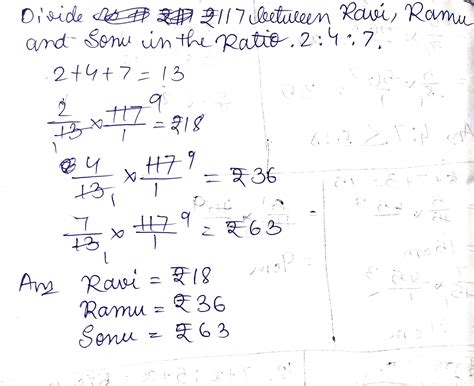 Divide ₹117 between Ravi, Ramu
and Sonu in the Ratio. 2:4:7.
2+4+7 = 13
2/13 × 117/1 9 = ₹18
4/13 × 117/1 9 = ₹36
7/13 × 117/1 9 = ₹63
Ans Ravi = ₹18
Ramu = ₹36
Sonu = ₹63